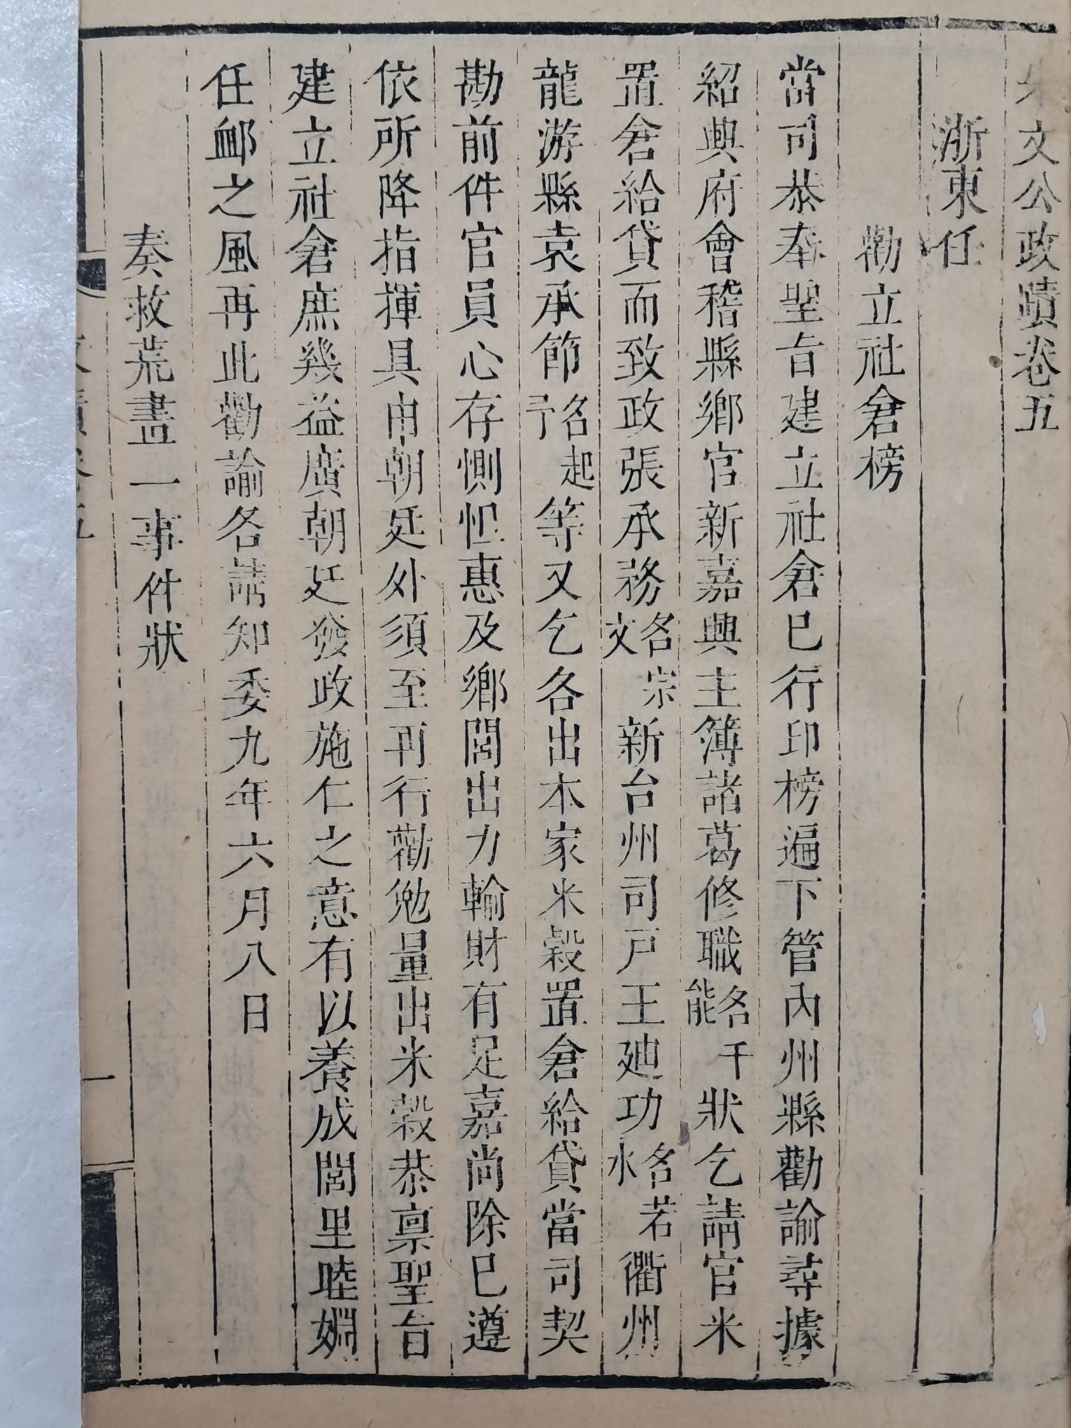 朱文公政蹟卷五
浙東任
勸立社倉榜
當司恭奉聖旨建立社倉巳行印榜遍下管內州縣勸諭尋據
紹興府會稽縣鄉官新嘉興主簿諸葛修職名千能狀乞請官米
置倉給貸而致政張承務名宗文新台州司戸王廸功名若水衢州
龍游縣袁承節名起予等又乞各出本家米穀置倉給貸當司契
勘前件官員心存惻怛惠及鄉閭出力輸財有足嘉尚除巳遵
依所降指揮具申朝廷外須至再行勸勉量出米穀恭禀聖旨
建立社倉庶幾益廣朝廷發政施仁之意有以養成閭里睦婣
任卹之風再此勸諭各請知委九年六月八日
奏救荒畫一事件狀
一